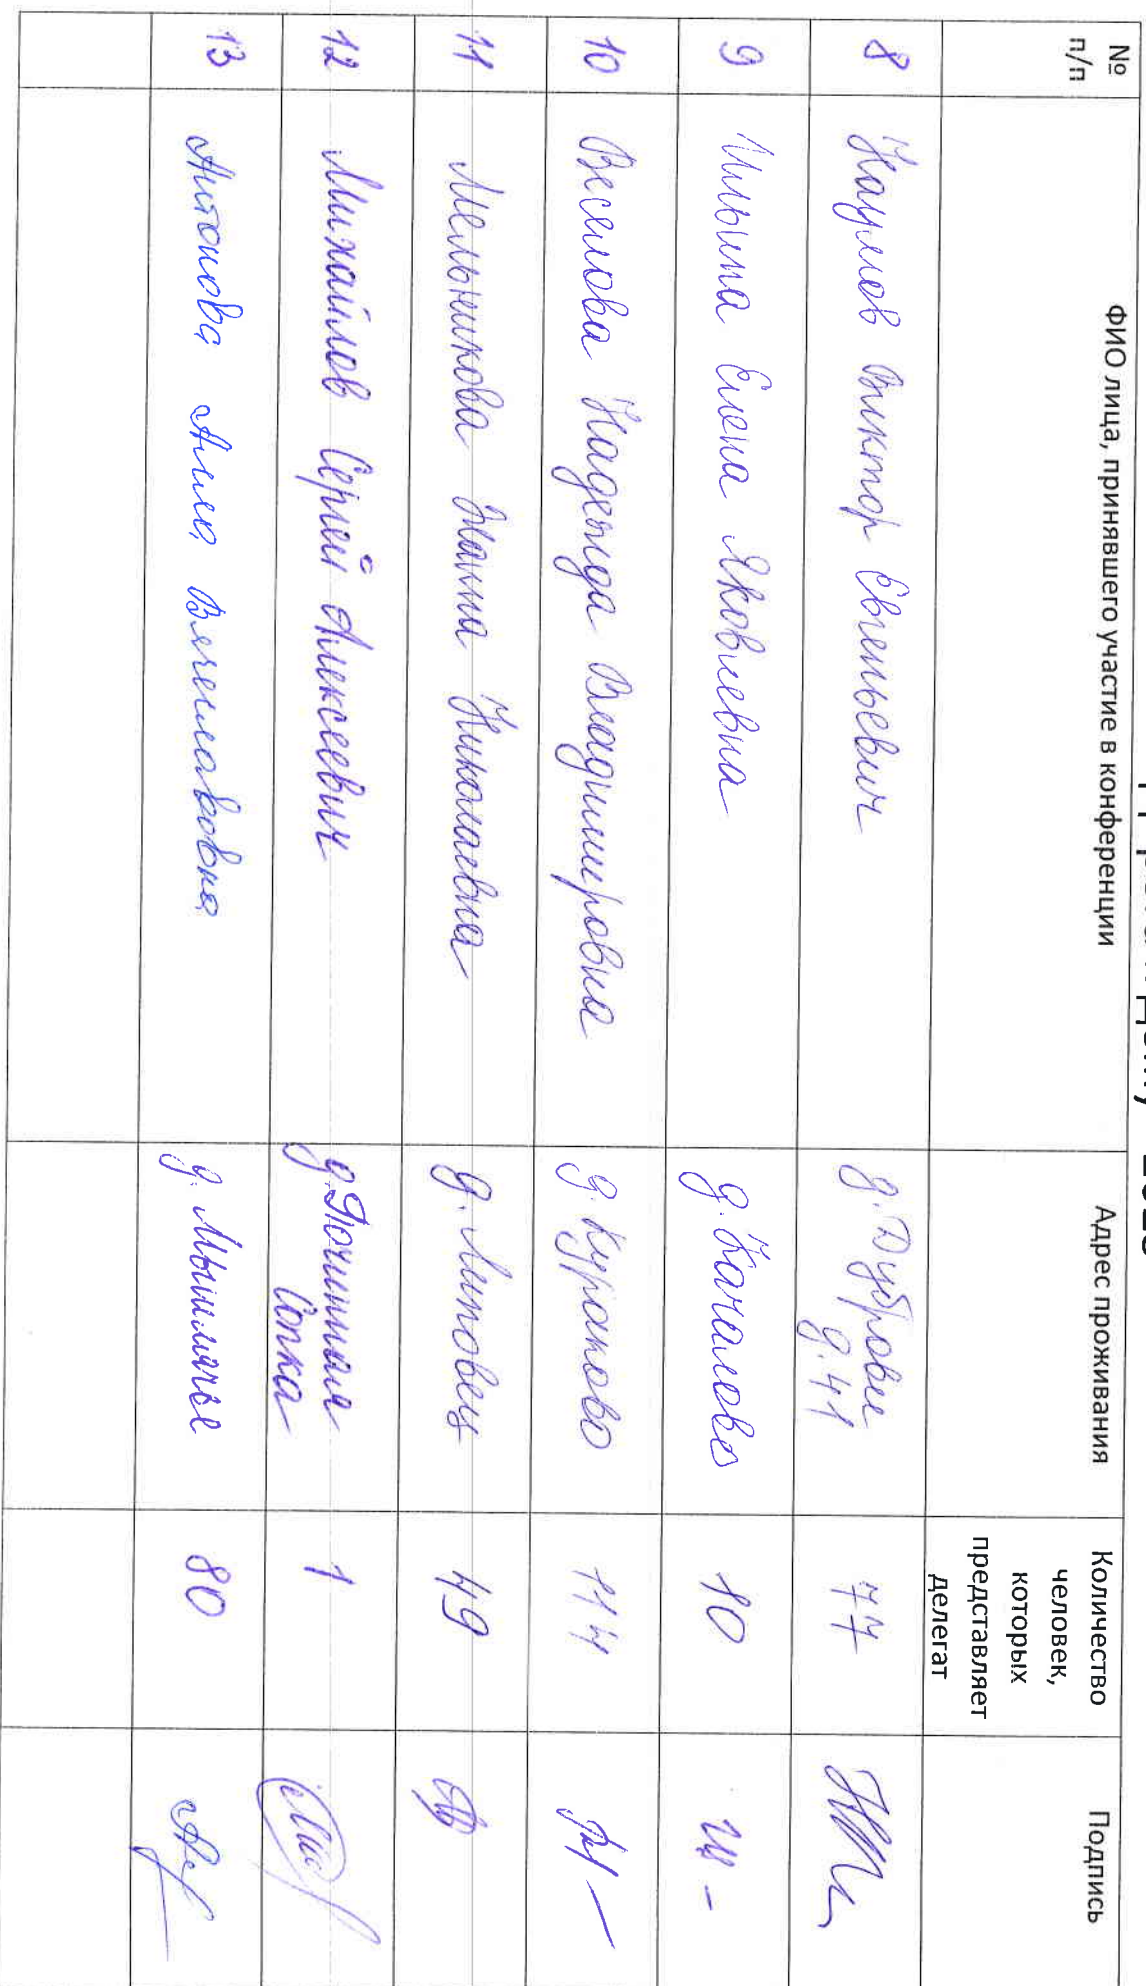 № п/п ФИО лица, принявшего участие в конференции Адрес проживания Количество человек, которых представляет делегат Подпись
8 Наумов Виктор Евгеньевич д. Дубровы д. 41 77
9 Ильина Елена Яковлевна д. Качалово 10
10 Веселова Надежда Владимировна д. Курапово 114
11 Мельникова Жанна Николаевна д. Липовец 49
12 Михайлов Сергей Алексеевич Сопка 1
13 Антонова Анна Вячеславовна 80